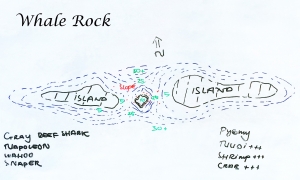 Whale Rock
N
20+
Slope
ISLAND
ISLAND
5
5
5
25
30+
Gray REEF SHARK
NAPOLEON
WAHOO
SNAPER
Pygmy
Nudi++
SHRIMP+++
CRAB +++